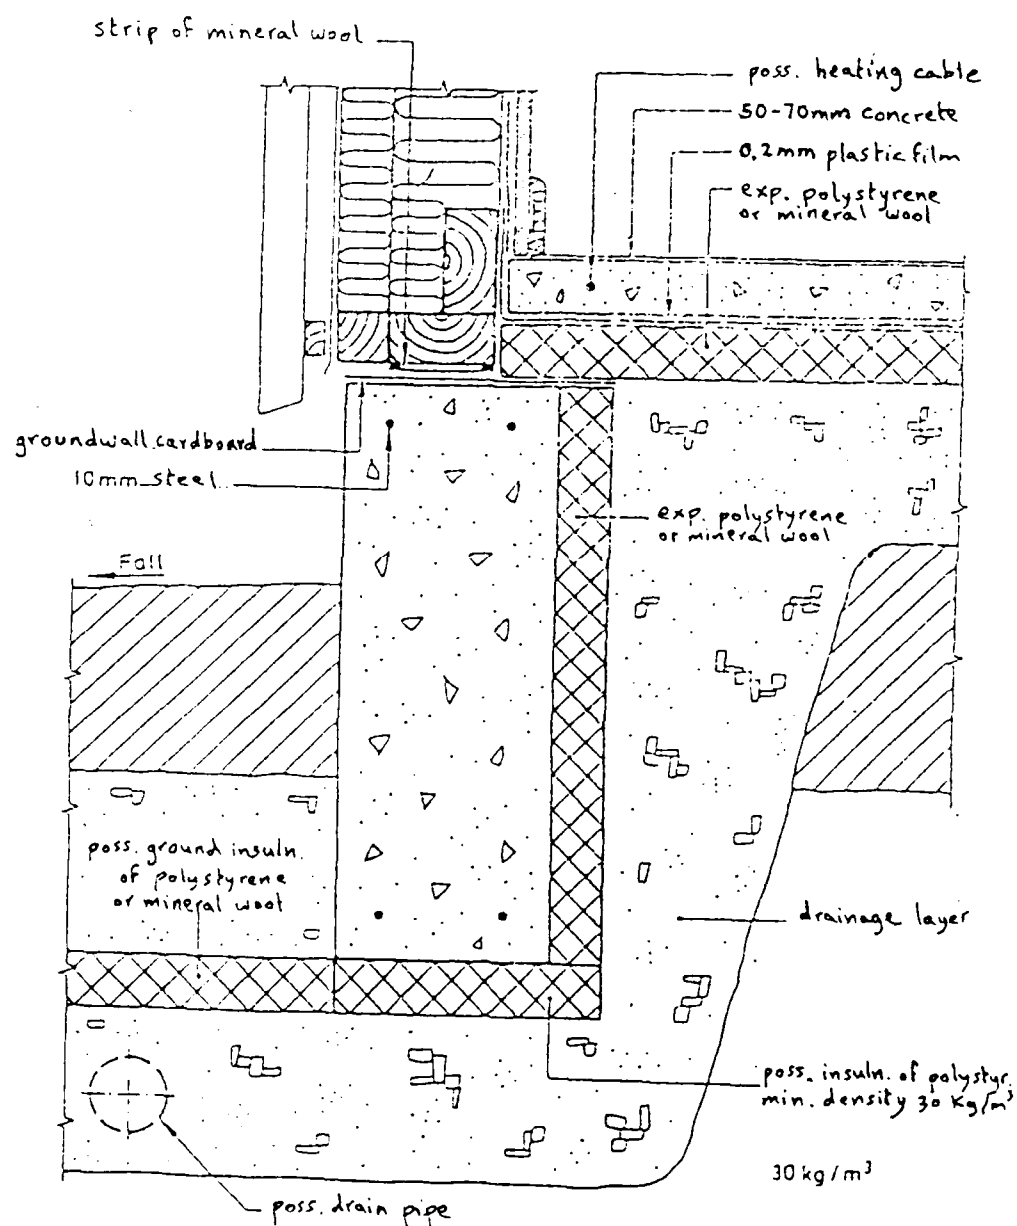 strip of mineral wool
poss. heating cable
50-70mm concrete
0.2mm plastic film
exp. polystyrene
or mineral wool
groundwall cardboard
10mm steel
exp. polystyrene
or mineral wool
Fall
poss. ground insuln.
of polystyrene
or mineral wool
drainage layer
poss. insuln. of polystyr.
min. density 30 kg/m³
30 kg/m³
poss. drain pipe